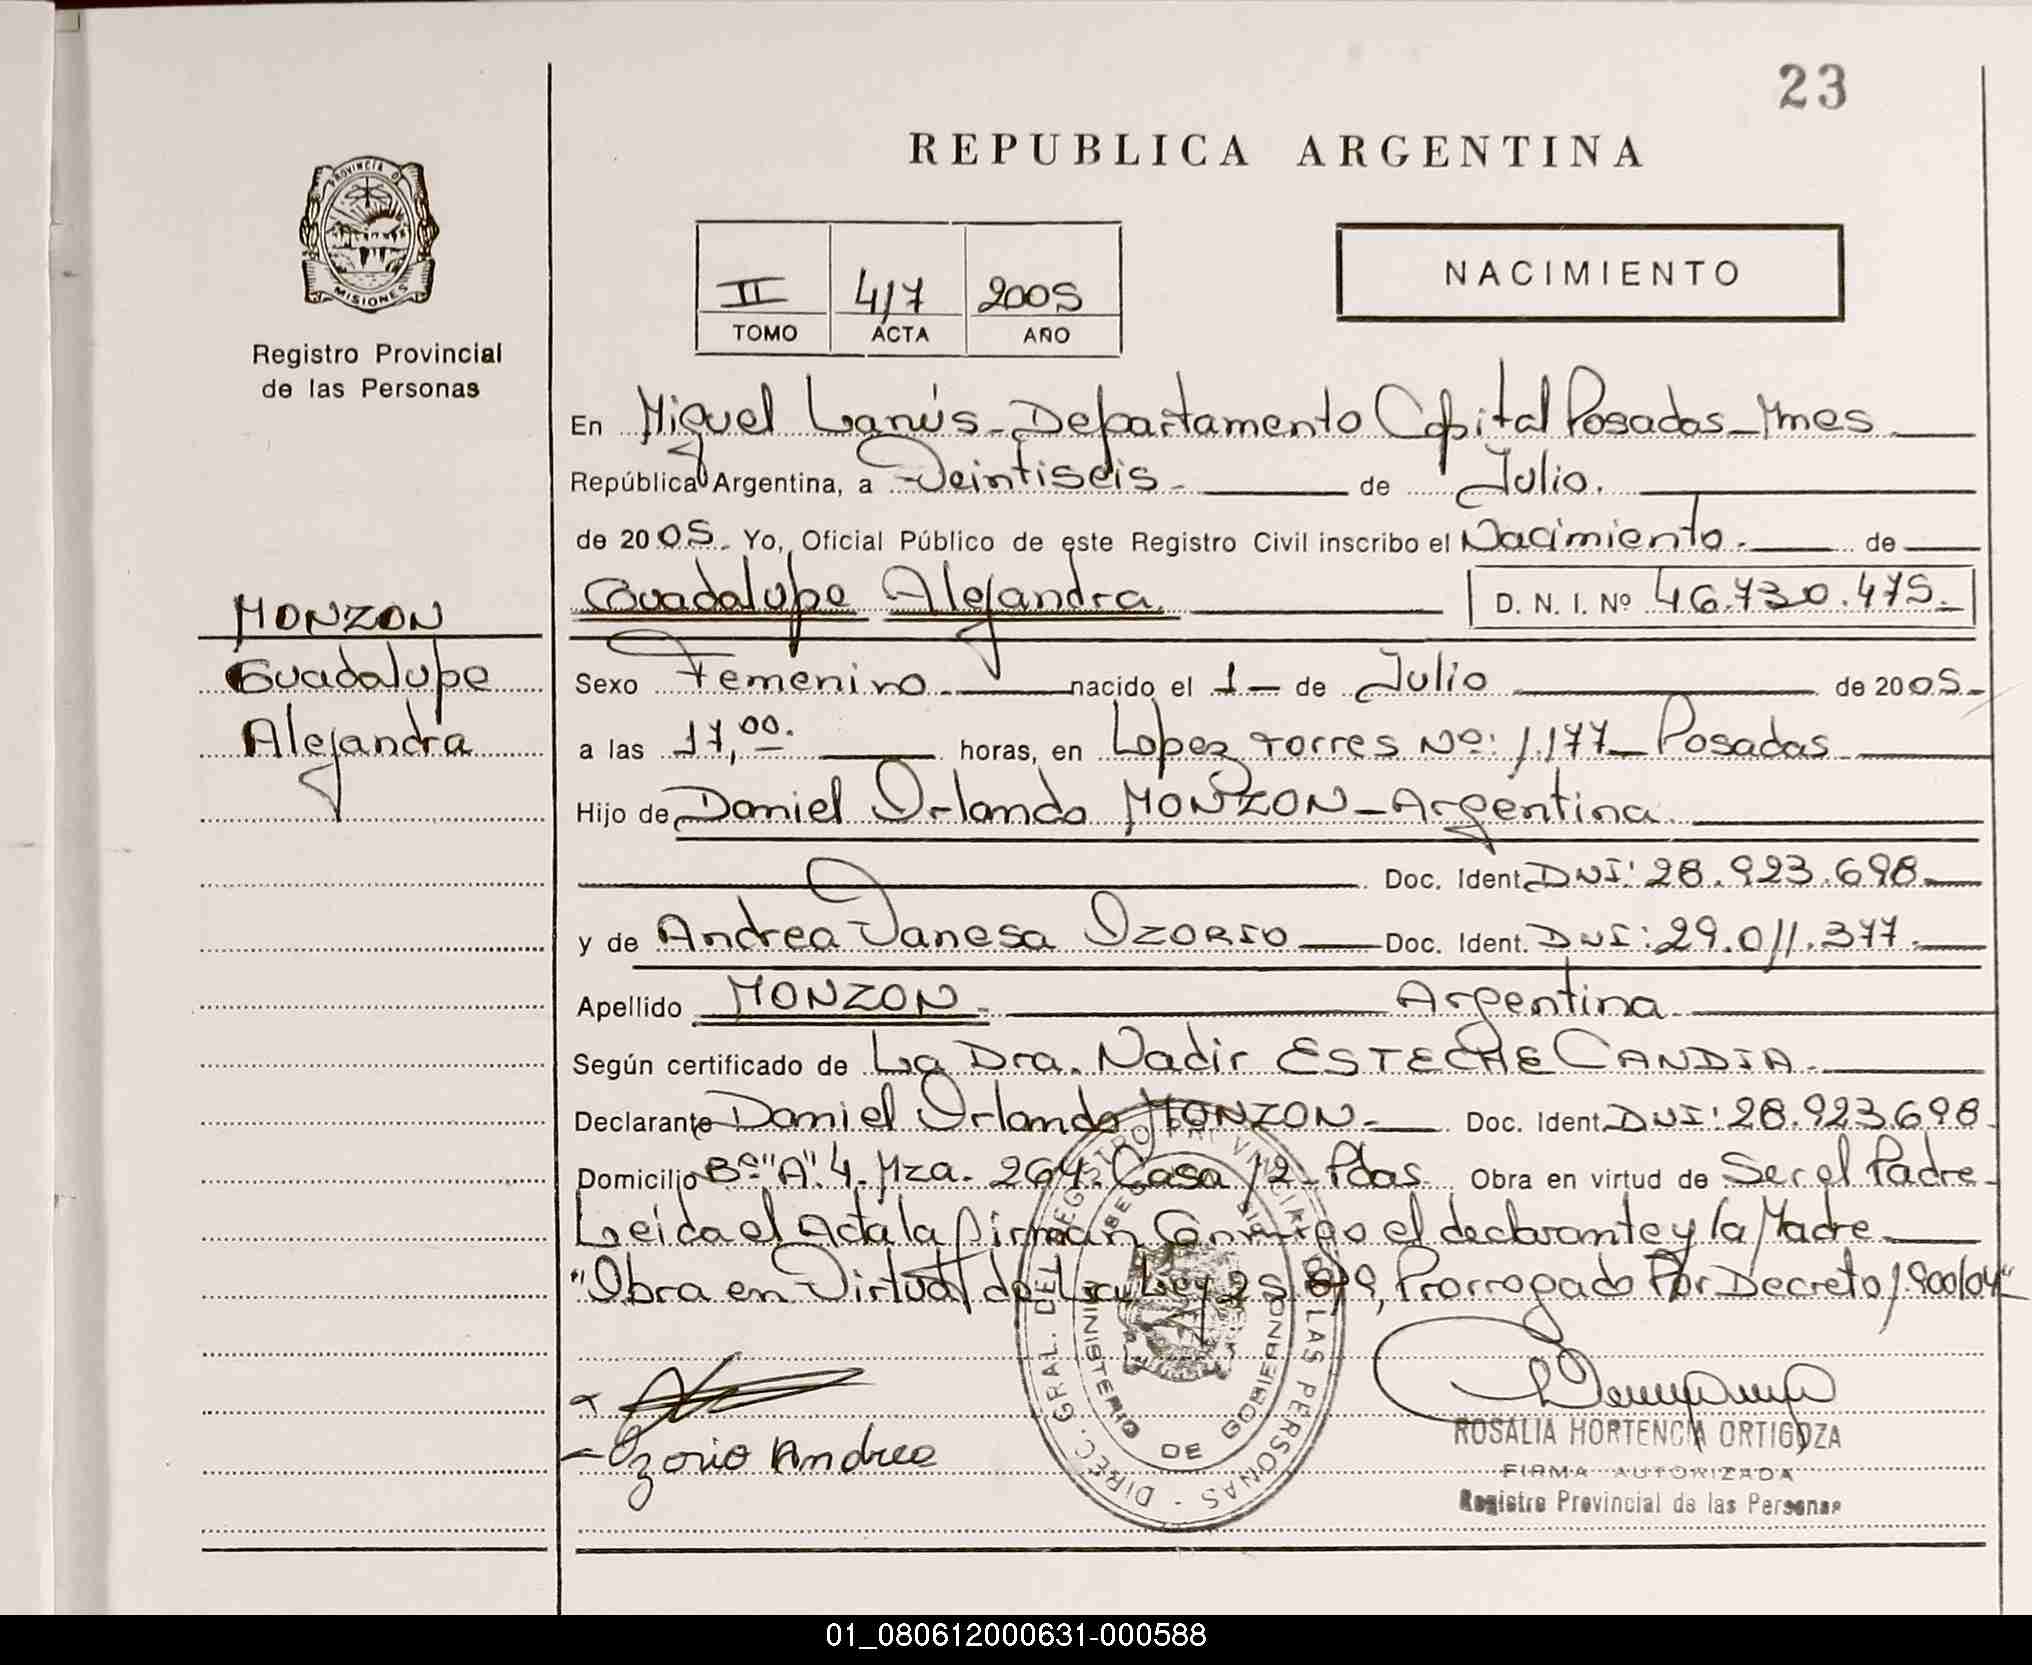 23
REPUBLICA ARGENTINA
PROVINCIA D
MISIONES
Registro Provincial
de las Personas
II 417 2005
TOMO ACTA AÑO
NACIMIENTO
En Miguel Lanús - Departamento Capital Posadas - Mnes
República Argentina, a Veintiseis - de Julio.
de 2005. Yo, Oficial Público de este Registro Civil inscribo el Nacimiento. de
Guadalupe Alejandra D. N. I. Nº 46.730.475.-
MONZON
Guadalupe
Alejandra
Sexo Femenino - nacido el 1 - de Julio de 2005.-
a las 17,00. horas, en Lopez Torres Nº: 1.177 - Posadas
Hijo de Daniel Orlando MONZON - Argentina
Doc. Ident. DNI: 28.923.698
y de Andrea Vanesa OZORIO Doc. Ident. DNI: 29.011.377.
Apellido MONZON. Argentina
Según certificado de La Dra. Nadir ESTECHE CANDIA.
Declarante Daniel Orlando MONZON. Doc. Ident. DNI: 28.923.698
Domicilio Bº "A". 4. Mza. 264. Casa 12 - Pdas. Obra en virtud de Ser el Padre -
Leída el Acta la firman Conmigo el declarante y la Madre
"Obra en Virtud de La Ley 25.819, Prorrogado Por Decreto 1.900/04"
Ozorio Andrea
DIREC. GRAL. DEL REGISTRO PROVINCIAL DE LAS PERSONAS
MINISTERIO DE GOBIERNO
ROSALIA HORTENCIA ORTIGOZA
FIRMA AUTORIZADA
Registro Provincial de las Personas
01_080612000631-000588